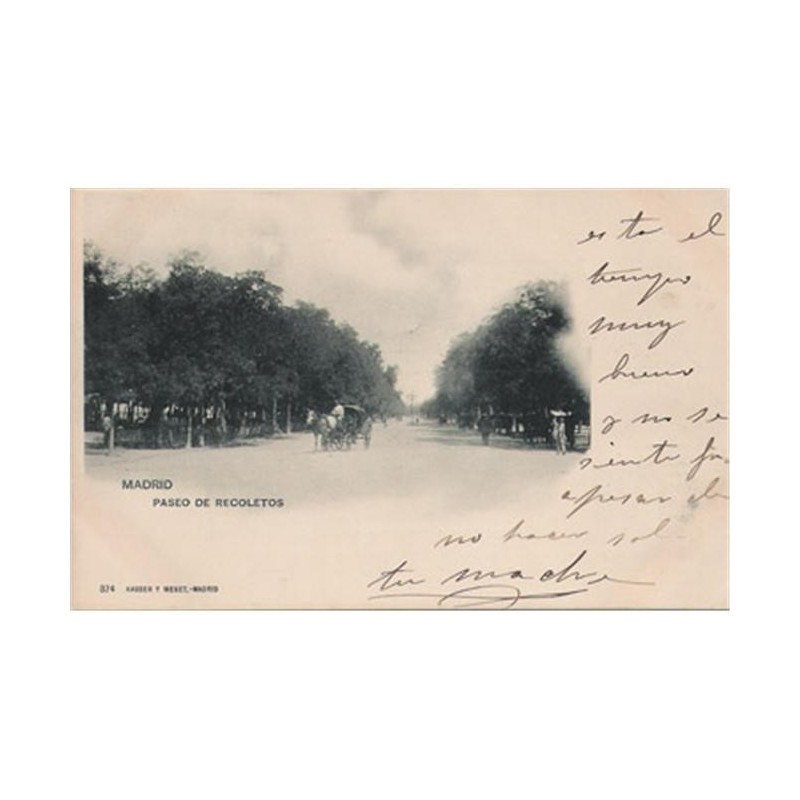 esta el
tiempo
muy
bueno
y no se
siente frio
apesar de
no hacer sol
tu madre
MADRID
PASEO DE RECOLETOS
874 HAUSER Y MENET,-MADRID